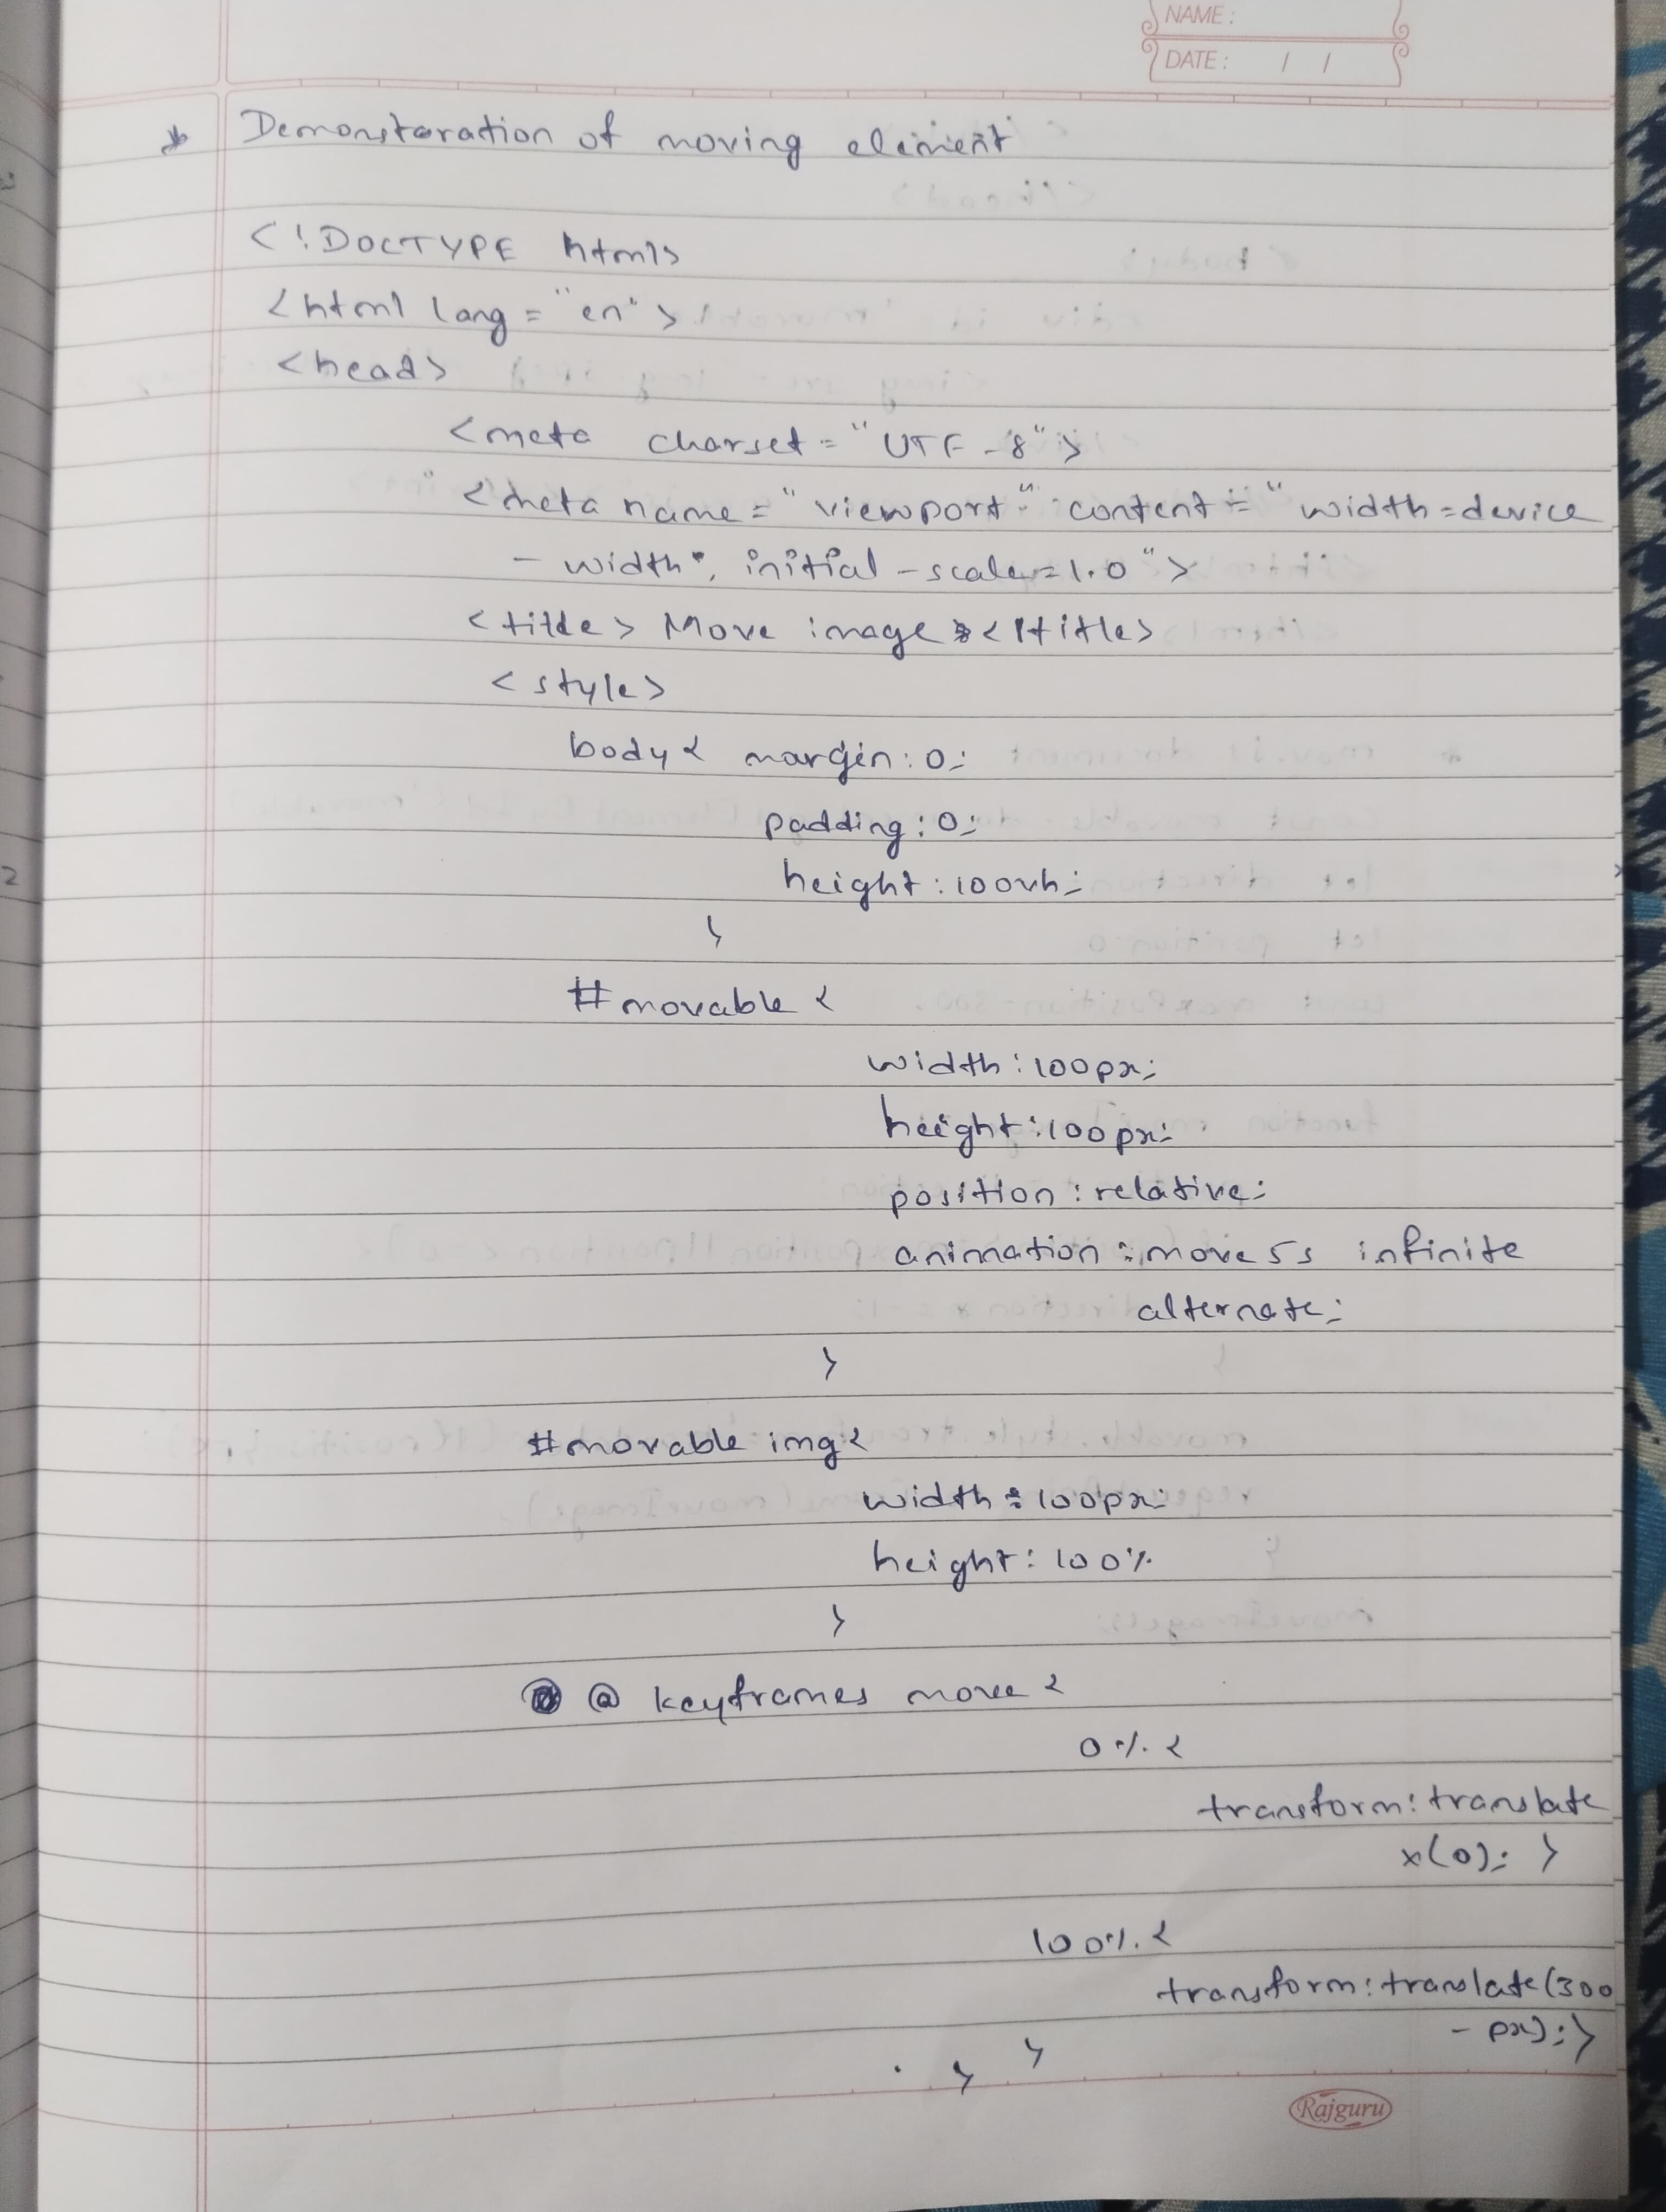 NAME :
DATE : / /
* Demonstoration of moving element
<!DOCTYPE html>
<html lang = "en" >
<head>
<meta charset = "UTF-8">
<meta name = "viewport" content = "width=device
- width", initial-scale=1.0 ">
<title> Move image </title>
<style>
body { margin : 0;
padding : 0;
height : 100vh;
}
#movable {
width : 100px;
height : 100px;
position : relative;
animation : move 5s infinite
alternate;
}
#movable img {
width : 100px;
height : 100%
}
@ keyframes move {
0% {
transform : translate
x(0); }
100% {
transform : translate(300
- px); }
}
}
Rajguru
2